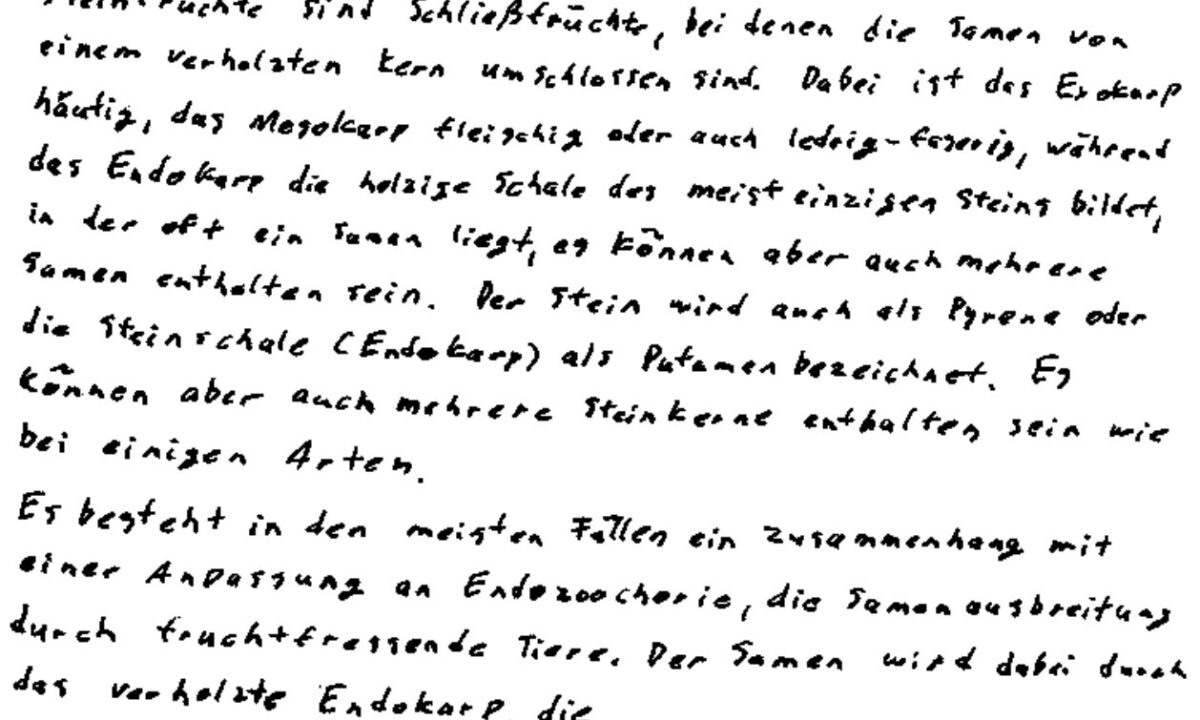 Steinfrüchte sind Schließfrüchte, bei denen die Samen von
einem verholzten Kern umschlossen sind. Dabei ist das Exokarp
häutig, das Mesokarp fleischig oder auch ledrig-faserig, während
das Endokarp die holzige Schale des meist einzigen Steins bildet,
in der oft ein Samen liegt, es können aber auch mehrere
Samen enthalten sein. Der Stein wird auch als Pyrene oder
die Steinschale (Endokarp) als Putamen bezeichnet. Es
können aber auch mehrere Steinkerne enthalten sein wie
bei einigen Arten.
Es besteht in den meisten Fällen ein Zusammenhang mit
einer Anpassung an Endozoochorie, die Samenausbreitung
durch fruchtfressende Tiere. Der Samen wird dabei durch
das verholzte Endokarp, die